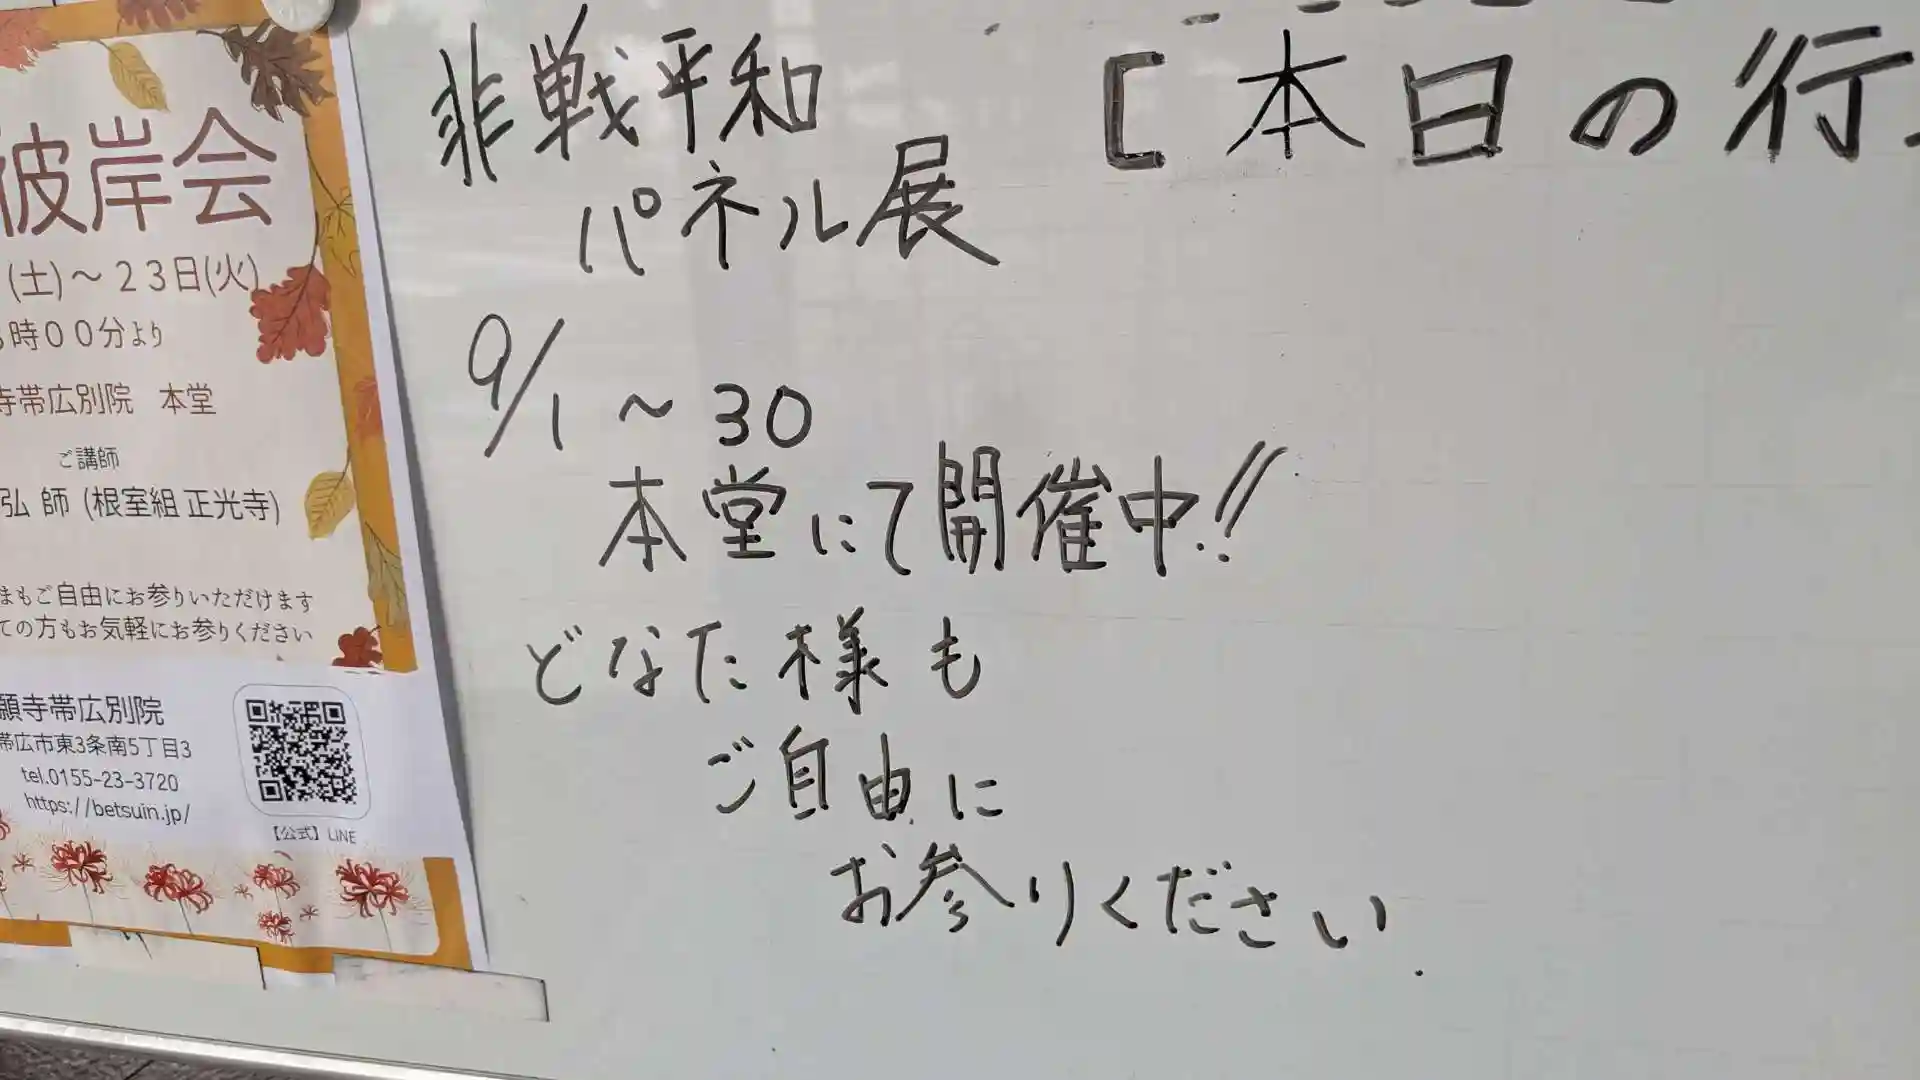 彼岸会
(土)～23日(火)
時00分より
寺帯広別院 本堂
ご講師
弘 師 (根室組 正光寺)
まもご自由にお参りいただけます
ての方もお気軽にお参りください
願寺帯広別院
帯広市東3条南5丁目3
tel.0155-23-3720
https://betsuin.jp/
【公式】LINE
非戦平和
パネル展
9/1～30
本堂にて開催中!!
どなた様も
ご自由に
お参りください.
[本日の行